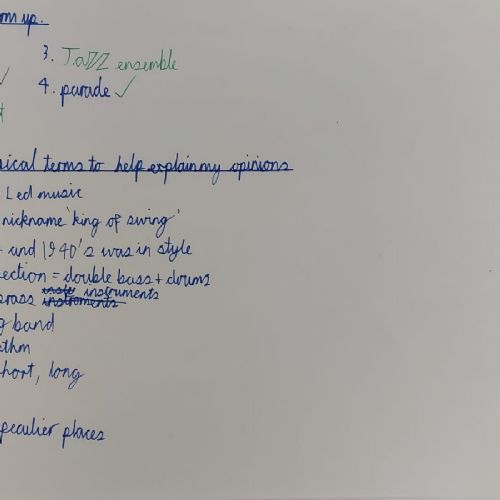 up.
3. Jazz ensemble
4. parade ✓
ical terms to help explain my opinions
Led music
nickname 'king of swing'
and 1940's was in style
ection = double bass + drums
brass instruments
instruments
g band
ythm
hort, long
peculier places